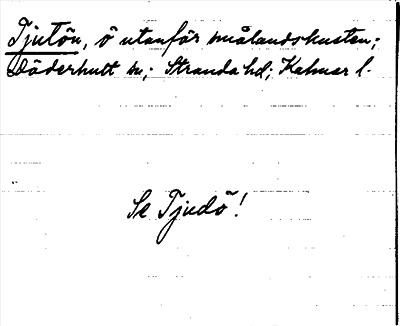 Tjutön, ö utanför smålandskusten;
Döderhult sn; Stranda hd; Kalmar l.
Se Tjudö!